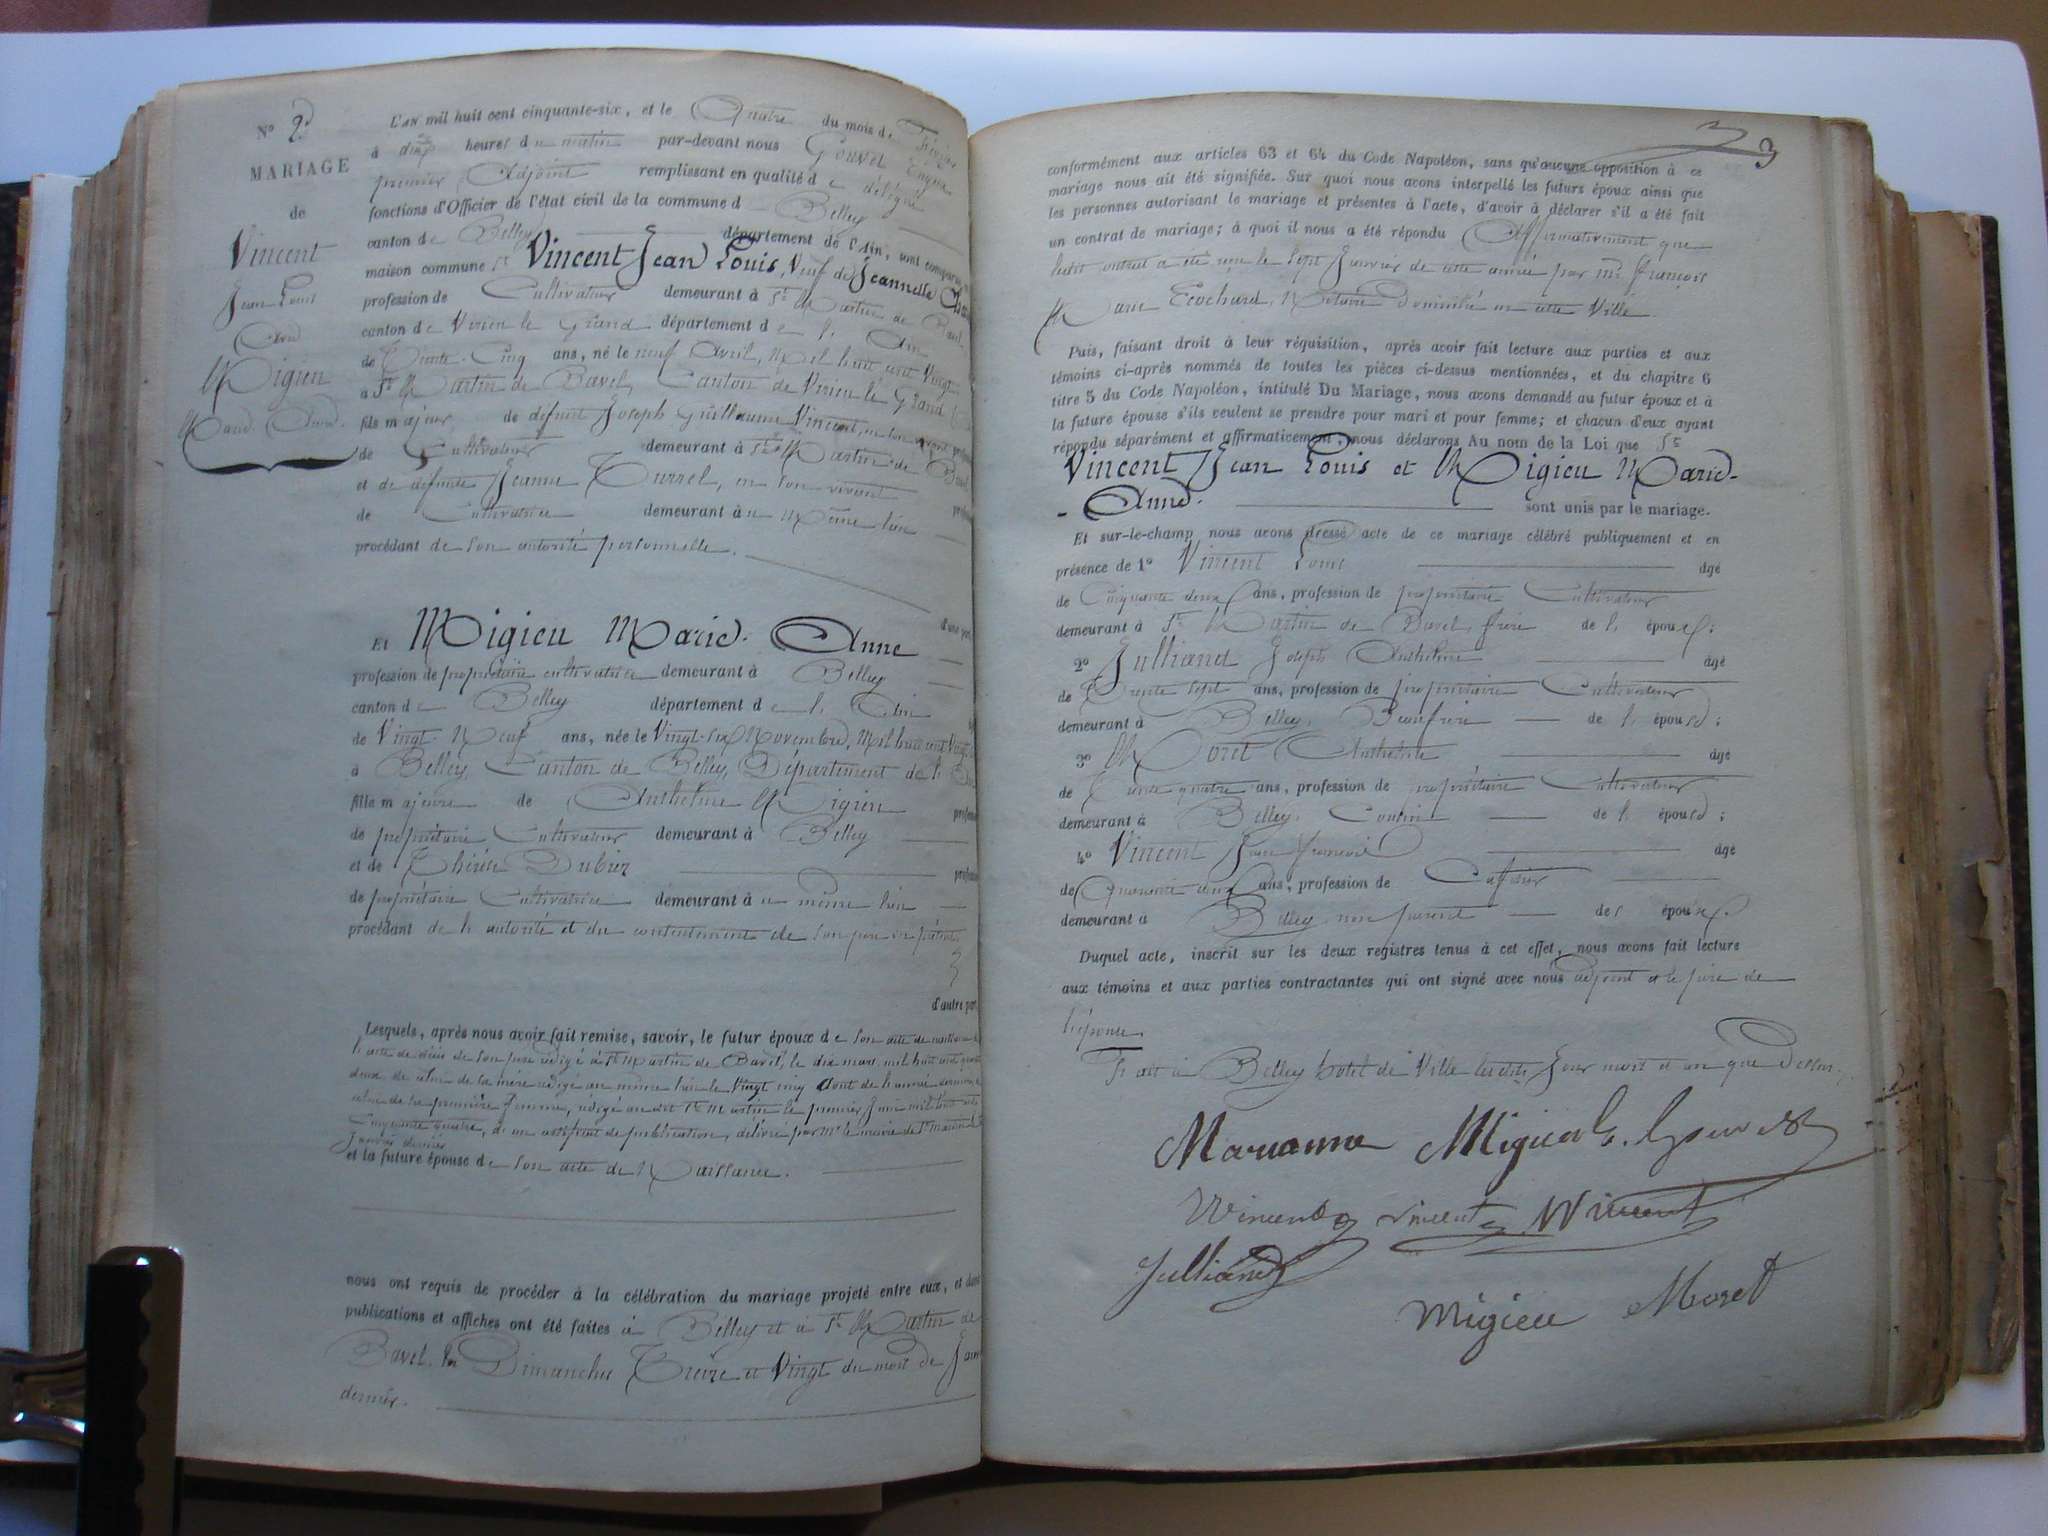 N° 2
MARIAGE
de
Vincent
Jean Louis
And
Migieu
Marie Anne.
L'AN mil huit cent cinquante-six, et le Quatre du mois de
à dix heures du matin par-devant nous Gouvet
premier Adjoint remplissant en qualité de délégué
fonctions d'Officier de l'état civil de la commune d Belley
canton de Belley département de l'Ain, sont comparus
maison commune Sr Vincent Jean Louis, Veuf de Jeannette
profession de Cultivateur demeurant à St Martin de Bavel
canton de Virieu le Grand département de l'Ain
de Trente-Cinq ans, né le neuf Avril, Mil huit cent Vingt
à St Martin de Bavel, Canton de Virieu le Grand
fils majeur, de défunt Joseph Guillaume Vincent, en son vivant
de Cultivateur demeurant à St Martin de Bavel
et de défunte Jeanne Turrel, en son vivant
de Cultivatrice demeurant à u Même lieu
procédant de son autorité personnelle.
d'une part,
Et Migieu Marie-Anne
profession de propriétaire cultivatrice demeurant à Belley
canton de Belley département de l'Ain
de Vingt-Neuf ans, née le Vingt-six Novembre, Mil huit cent Vingt
à Belley, Canton de Belley, Département de l'Ain
fille majeure de Anthelme Migieu
de propriétaire Cultivateur demeurant à Belley
et de Thérèse Dubiez
de propriétaire Cultivatrice demeurant à u même lieu
procédant de l'autorité et du consentement de son père ici présent
d'autre part.
Lesquels, après nous avoir fait remise, savoir, le futur époux de son acte de naissance
l'acte de décès de son père rédigé à St Martin de Bavel, le dix mars mil huit cent
deux, de celui de sa mère rédigé au même lieu le Vingt cinq Août de l'année dernière
celui de sa première femme, rédigé au dit St Martin le premier Juin mil huit cent
Cinquante quatre, & un certificat de publication, délivré par Mr le maire de St Martin le
Janvier dernier
et la future épouse de son acte de Naissance.
nous ont requis de procéder à la célébration du mariage projeté entre eux, et dont
publications et affiches ont été faites à Belley et à St Martin de
Bavel, les Dimanches Treize et Vingt du mois de Janvier
dernier.
3
conformément aux articles 63 et 64 du Code Napoléon, sans qu'aucune opposition à ce
mariage nous ait été signifiée. Sur quoi nous avons interpellé les futurs époux ainsi que
les personnes autorisant le mariage et présentes à l'acte, d'avoir à déclarer s'il a été fait
un contrat de mariage; à quoi il nous a été répondu Affirmativement que
ledit contrat a été reçu le sept Janvier de cette année par Me François
Marie Ecochard, Notaire domicilié en cette Ville.
Puis, faisant droit à leur réquisition, après avoir fait lecture aux parties et aux
témoins ci-après nommés de toutes les pièces ci-dessus mentionnées, et du chapitre 6
titre 5 du Code Napoléon, intitulé Du Mariage, nous avons demandé au futur époux et à
la future épouse s'ils veulent se prendre pour mari et pour femme; et chacun d'eux ayant
répondu séparément et affirmativement, nous déclarons Au nom de la Loi que Sr
Vincent Jean Louis et Migieu Marie-
-Anne. sont unis par le mariage.
Et sur-le-champ nous avons dressé acte de ce mariage célébré publiquement et en
présence de 1° Vincent Louis âgé
de Cinquante deux ans, profession de propriétaire Cultivateur
demeurant à St Martin de Bavel, frère de l'époux;
2° Julliand Joseph Anthelme âgé
de Trente sept ans, profession de propriétaire Cultivateur
demeurant à Belley, Beaufrère de l'épouse;
3° Moret Anthelme âgé
de Trente quatre ans, profession de propriétaire Cultivateur
demeurant à Belley, Cousin de l'épouse;
4° Vincent Jean François âgé
de Quarante deux ans, profession de Cafetier
demeurant à Belley, non parent de l'époux.
Duquel acte, inscrit sur les deux registres tenus à cet effet, nous avons fait lecture
aux témoins et aux parties contractantes qui ont signé avec nous adjoint et le père de
l'épouse.
Fait à Belley hotel de Ville lesdits Jour mois et an que Dessus.
Marianne Migieu G. Gouvet
Vincent Vincent Vincent
Julliand
Migieu Moret